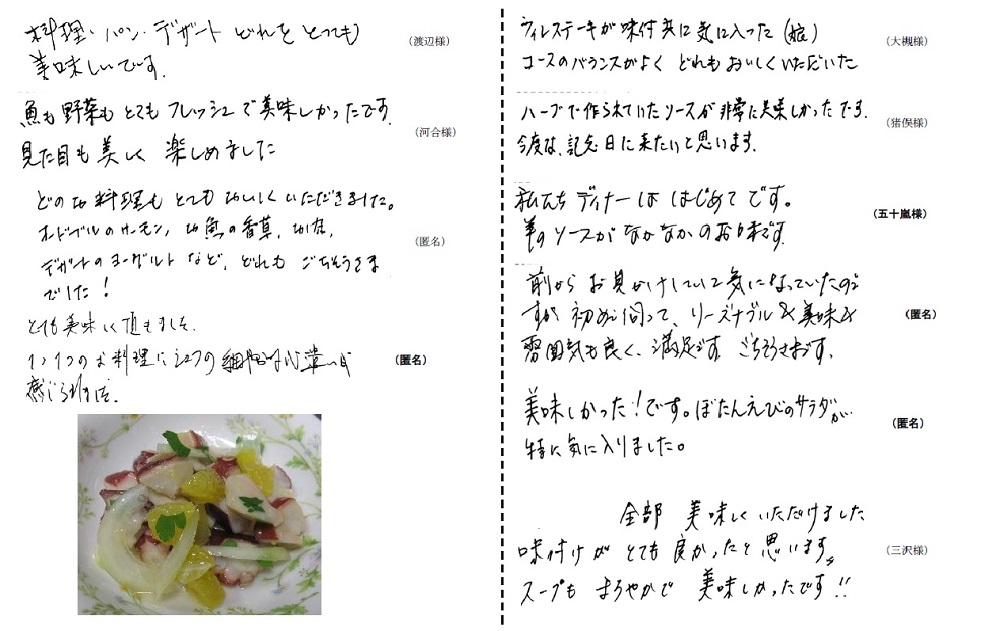 料理・パン・デザート どれをとっても
美味しいです。
(渡辺様)
魚も野菜もとてもフレッシュで美味しかったです。
見た目も美しく 楽しめました
(河合様)
どのお料理もとてもおいしくいただきました。
オードブルのサーモン、お魚の香草、お肉、
デザートのヨーグルトなど、どれもごちそうさま
でした！
(匿名)
とても美味しく頂きました。
1つ1つのお料理にシェフの細やかな心遣いが
感じられました。
(匿名)
ヒレステーキが味付共に気に入った(娘)
コースのバランスがよく どれもおいしくいただいた
(大槻様)
ハーブで作られていたソースが非常に美味しかったです。
今度は、記念日に来たいと思います。
(猪俣様)
私たちディナーははじめてです。
羊のソースがなかなかのお味です。
(五十嵐様)
前からお見かけしていて気になっていたので
すが 初めて伺って、リーズナブル&美味&
雰囲気も良く、満足です。ごちそうさまです。
(匿名)
美味しかった！です。ぼたんえびのサラダが
特に気に入りました。
(匿名)
全部 美味しくいただけました
味付けがとても良かったと思います。
スープもまろやかで 美味しかったです!!
(三沢様)